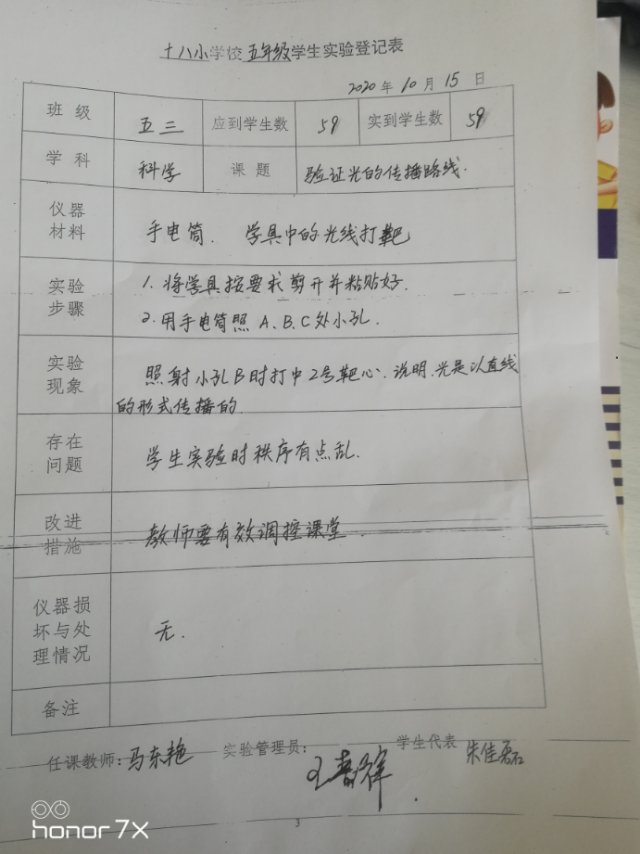 十八小学校五年级学生实验登记表
2020年10月15日
班级 五三 应到学生数 59 实到学生数 59
学科 科学 课题 验证光的传播路线.
仪器材料 手电筒. 学具中的光线打靶
实验步骤 1.将学具按要求剪开并粘贴好.
2.用手电筒照A、B、C处小孔.
实验现象 照射小孔B时打中2号靶心.说明光是以直线
的形式传播的.
存在问题 学生实验时秩序有点乱.
改进措施 教师要有效调控课堂.
仪器损坏与处理情况 无.
备注
任课教师:马东艳 实验管理员: 王 学生代表 朱佳磊
3
honor 7X